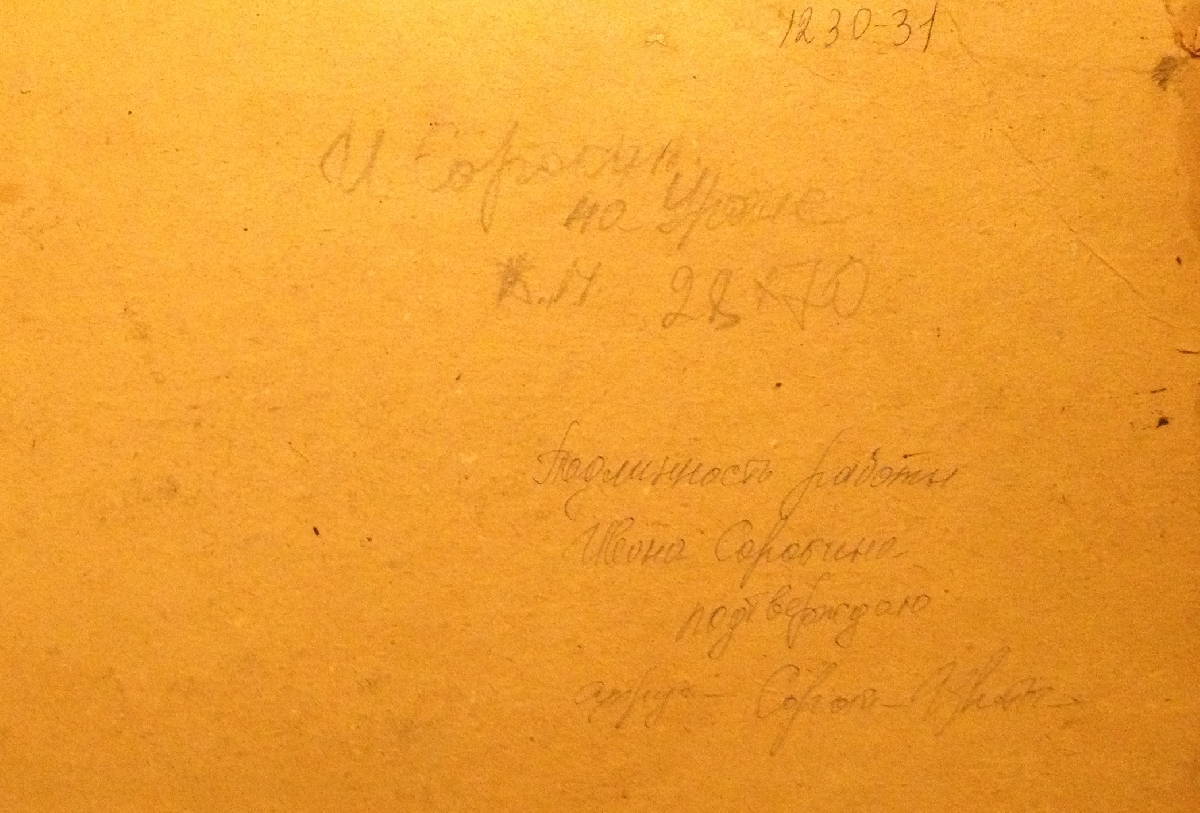 1230-31
И Сорокин
на Урале
к.м. 28х70
Подлинность работы
Ивана Сорокина
подтверждаю